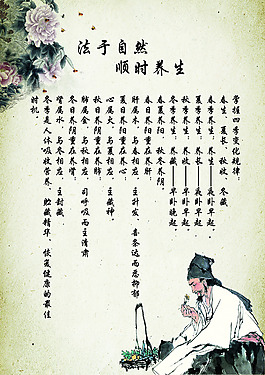 法于自然
顺时养生
掌握四季变化规律：
春生、夏长、秋收、冬藏。
春季养生：养生——夜卧早起。
夏季养生：养长——夜卧早起。
秋季养生：养收——早卧早起。
冬季养生：养藏——早卧晚起。
春夏养阳，秋冬养阴
春日养阳重在养肝
肝属木，与春相应，主升发，喜条达而恶抑郁
夏日养阳重在养心
心属火，与夏相应，主藏神
秋日养阴重在养肺
肺属金，与秋相应，司呼吸而主清肃
冬日养阴重在养肾
肾属水，与冬相应，主封藏
冬季是人体吸收营养，贮藏精华，恢复健康的最佳
时机。